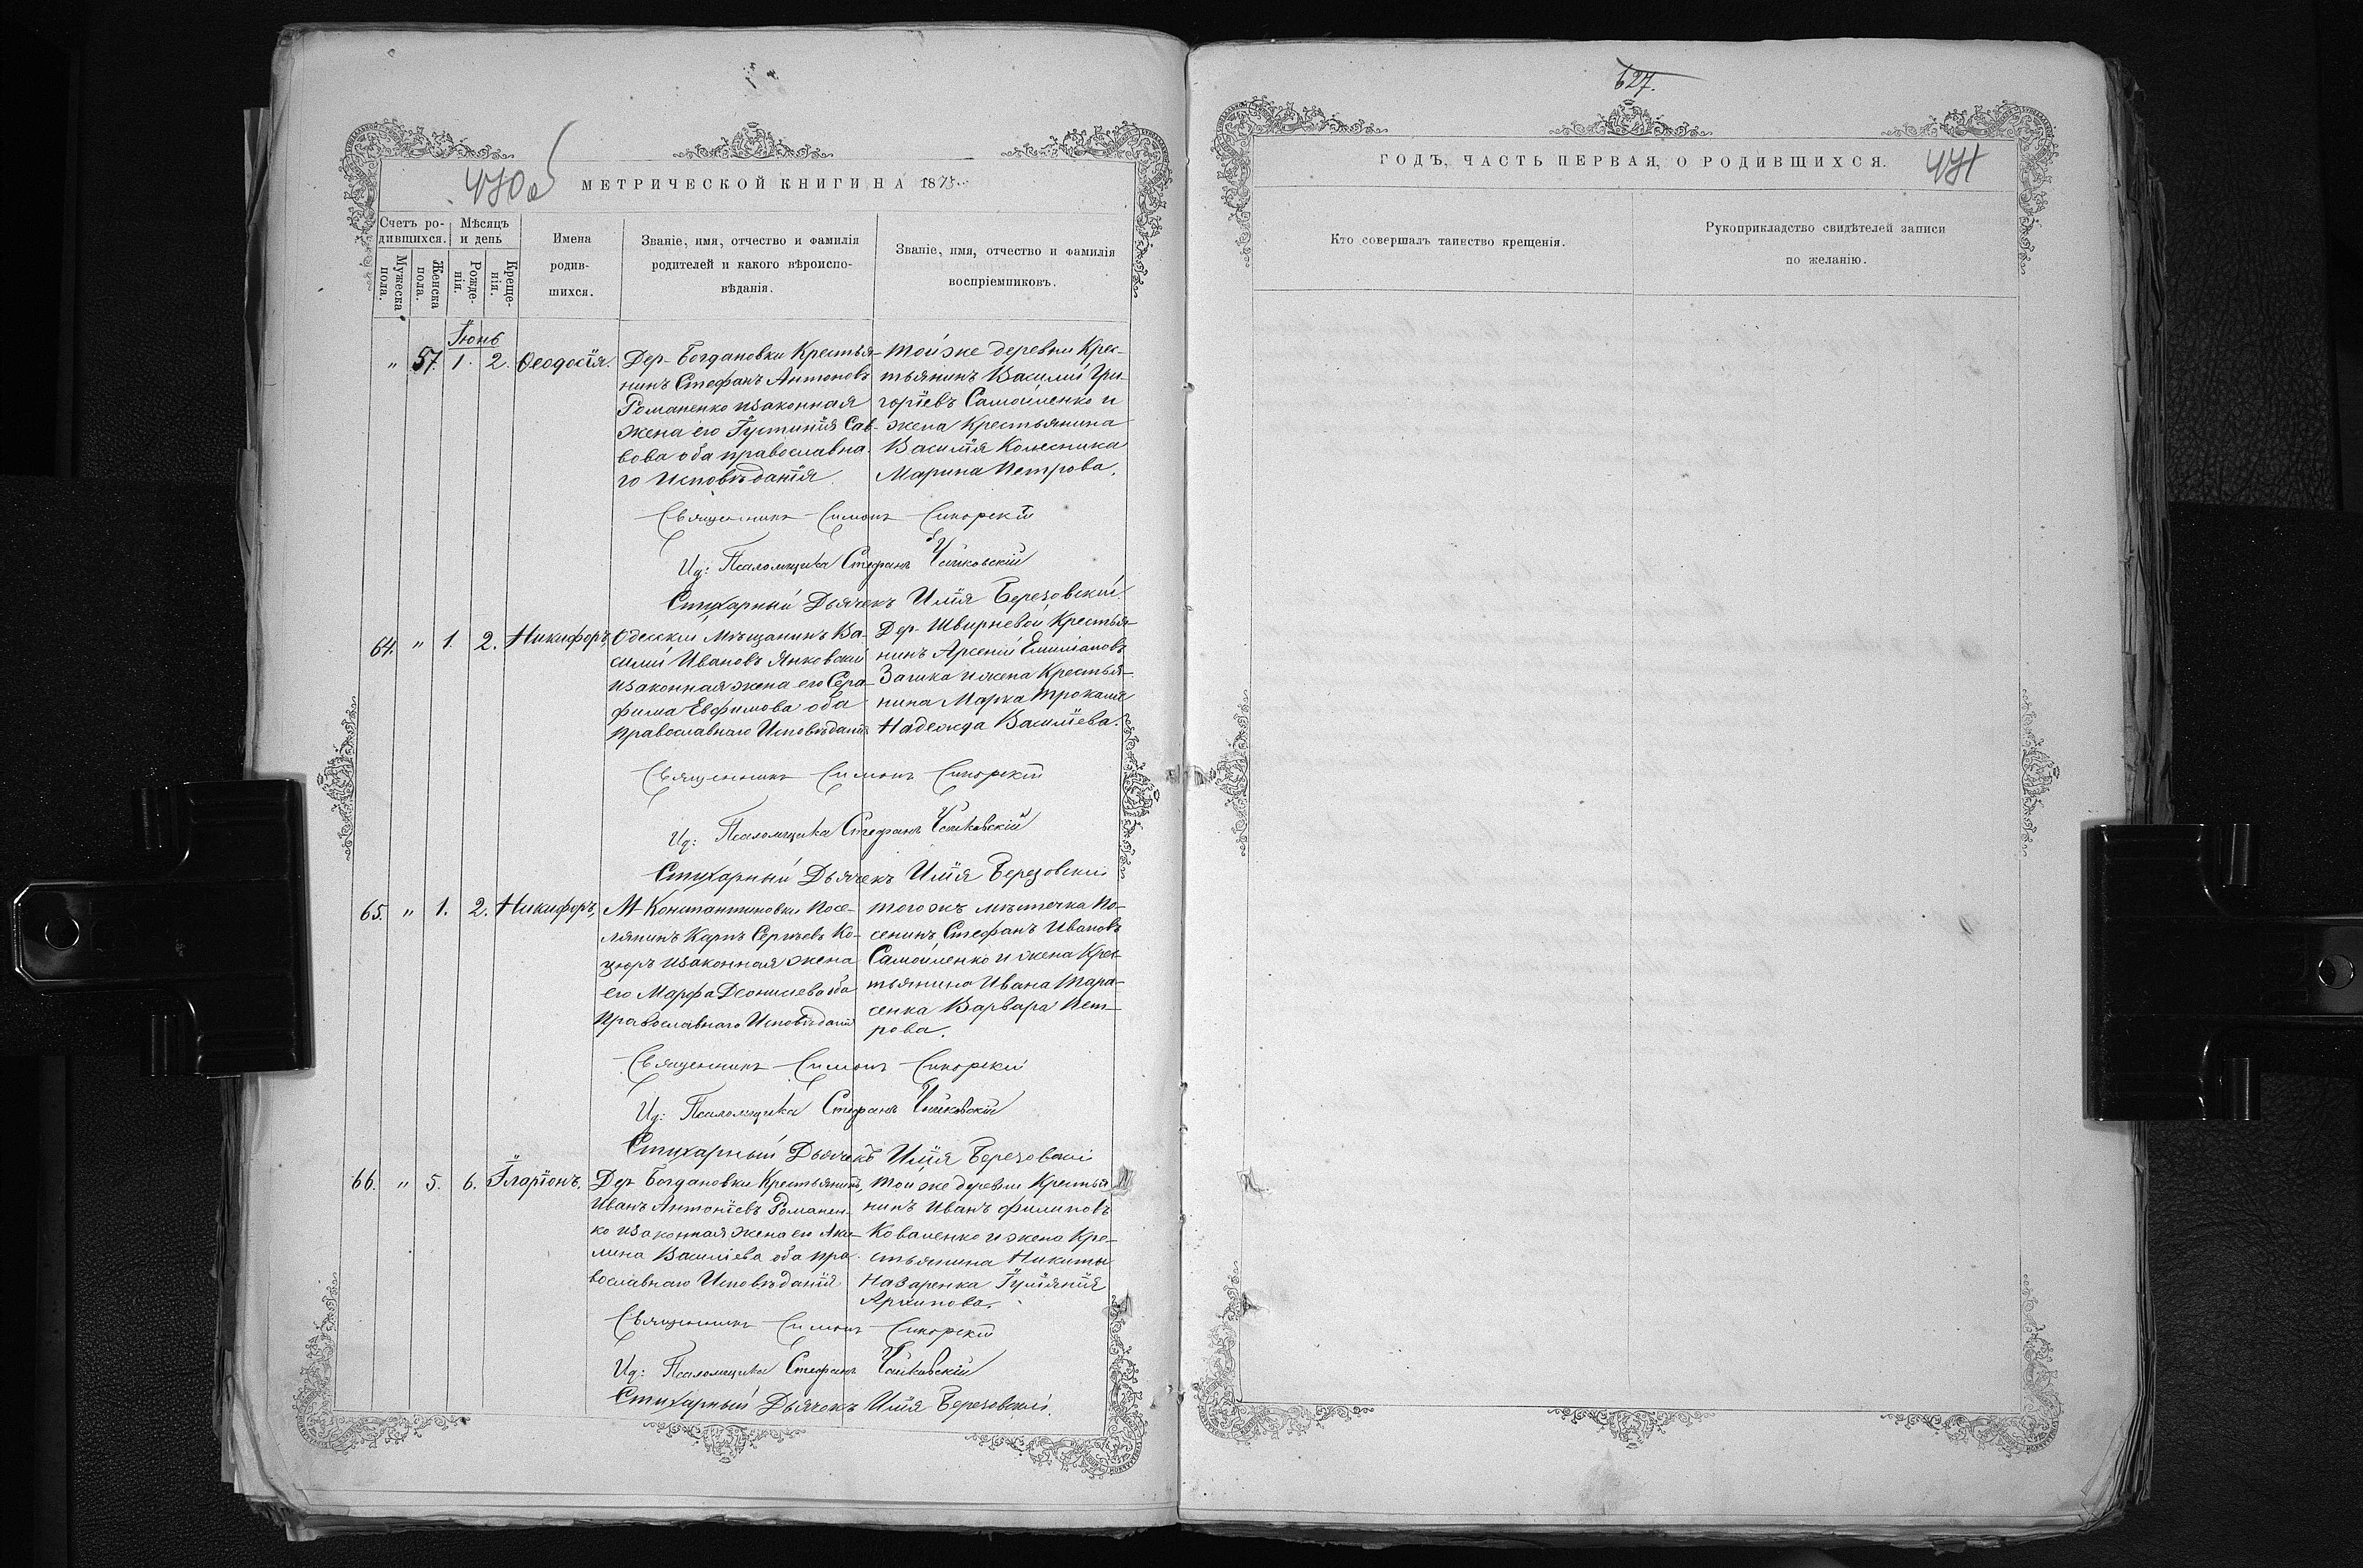 470 об
МЕТРИЧЕСКОЙ КНИГИ НА 1875
Счетъ ро-
дившихся.
Мужеска пола.
Женска пола.
Мѣсяцъ
и день
Рожде-
нія.
Креще-
нія.
Имена
родив-
шихся.
Званіе, имя, отчество и фамилія
родителей и какого вѣроиспо-
вѣданія.
Званіе, имя, отчество и фамилія
воспріемниковъ.
Іюнь
" 57. 1. 2. Ѳеодосія.
Дер. Богдановки Крестья-
нинъ Стефанъ Антоновъ
Романенко изаконная
жена его Іустинія Сав-
вова оба православна
го Исповѣданія.
Тойже деревни Крес-
тьянинъ Василий Гри-
горіевъ Самойленко и
жена Крестьянина
Василія Колесника
Марина Петрова.
Священникъ Симонъ Сикорскій
Ид: Псаломщика Стефанъ Чайковскій
Стихарный Дьячекъ Илія Березовский
64. " 1. 2. Никифоръ,
Одесский Мѣщанинъ Ва-
силий Ивановъ Янковский
изаконная жена его Сера-
фима Евфимова оба
православнаго Исповѣданія
Дер. Ширневой Крестья-
нинъ Арсений Емиліановъ
Заика и жена Крестья-
нина Марка
Надежда Василіева.
Священникъ Симонъ Сикорскій
Ид: Псаломщика Стефанъ Чайковскій
Стихарный Дьячекъ Илія Березовский
65. " 1. 2. Никифоръ,
М Константиновки Посе-
лянинъ Карпъ Сергѣевъ Ко-
цюръ изаконная жена
его Марфа Деонисіева оба
Православнаго Исповѣданія
тогожъ мѣстечка По-
селинъ Стефанъ Ивановъ
Самойленко и жена Крес-
тьянина Ивана Тара-
сенка Варвара Пет-
рова.
Священникъ Симонъ Сикорский
Ид: Псаломщика Стефанъ Чайковскій
Стихарный Дьячекъ Илія Березовский
66. " 5. 6. Іларіонъ.
Дер Богдановки Крестьянинъ,
Иванъ Антоніевъ Романен-
ко изаконная жена его Аки-
лина Василіева оба пра-
вославнаго Исповѣданія
Той же деревни Крестья
нинъ Иванъ Филиповъ
Коваленко и жена Кре-
стьянина Никиты
Назаренка Іуліянія
Архипова.
Священникъ Симонъ Сикорскій
Ид: Псаломщика Стефанъ Чайковскій
Стихарный Дьячекъ Илія Березовский.
627.
ГОДЪ, ЧАСТЬ ПЕРВАЯ, О РОДИВШИХСЯ.
471
Кто совершалъ таинство крещенія.
Рукоприкладство свидѣтелей записи
по желанію.